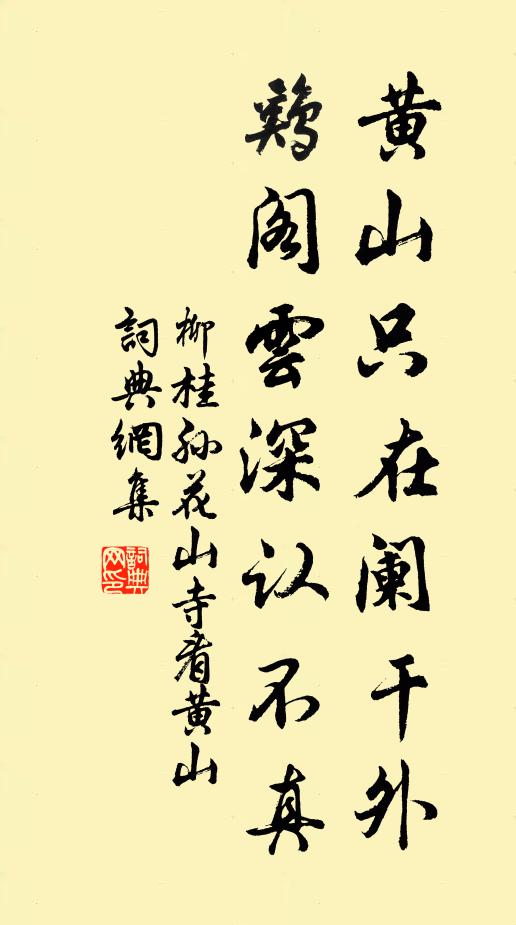 黄山只在阑干外
鷄阁雲深认不真
柳桂孙花山寺看黄山
詞典網集
詞典网印